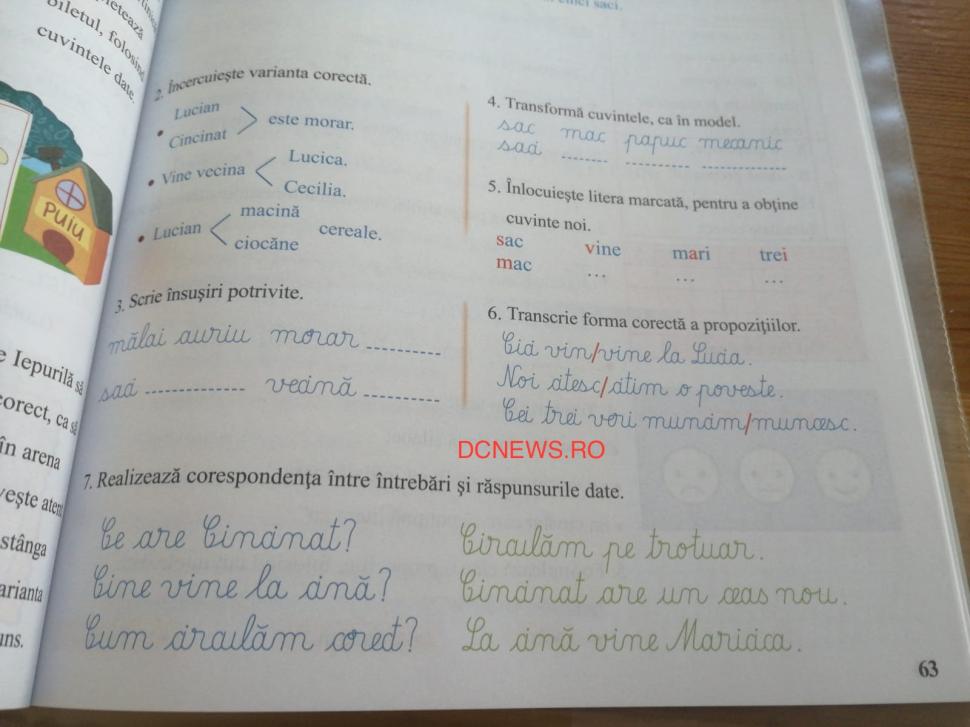 cinci saci.
biletul, folosind
cuvintele date.
PUIU
Iepurilă să
corect, ca să
în arena
stânga
varianta
2. Încercuiește varianta corectă.
• Lucian
Cincinat
este morar.
• Vine vecina
Lucica.
Cecilia.
• Lucian
macină
ciocăne
cereale.
3. Scrie însușiri potrivite.
mălai auriu morar
saci vecină
4. Transformă cuvintele, ca în model.
sac mac papuc mecanic
saci
5. Înlocuiește litera marcată, pentru a obține
cuvinte noi.
sac vine mari trei
mac ... ... ...
6. Transcrie forma corectă a propozițiilor.
Cici vin/vine la Lucia.
Noi citesc/citim o poveste.
Cei trei veri muncim/muncesc.
DCNEWS.RO
7. Realizează corespondența între întrebări și răspunsurile date.
Ce are Cincinat? Circulăm pe trotuar.
Cine vine la cină? Cincinat are un ceas nou.
Cum circulăm corect? La cină vine Maricica.
63